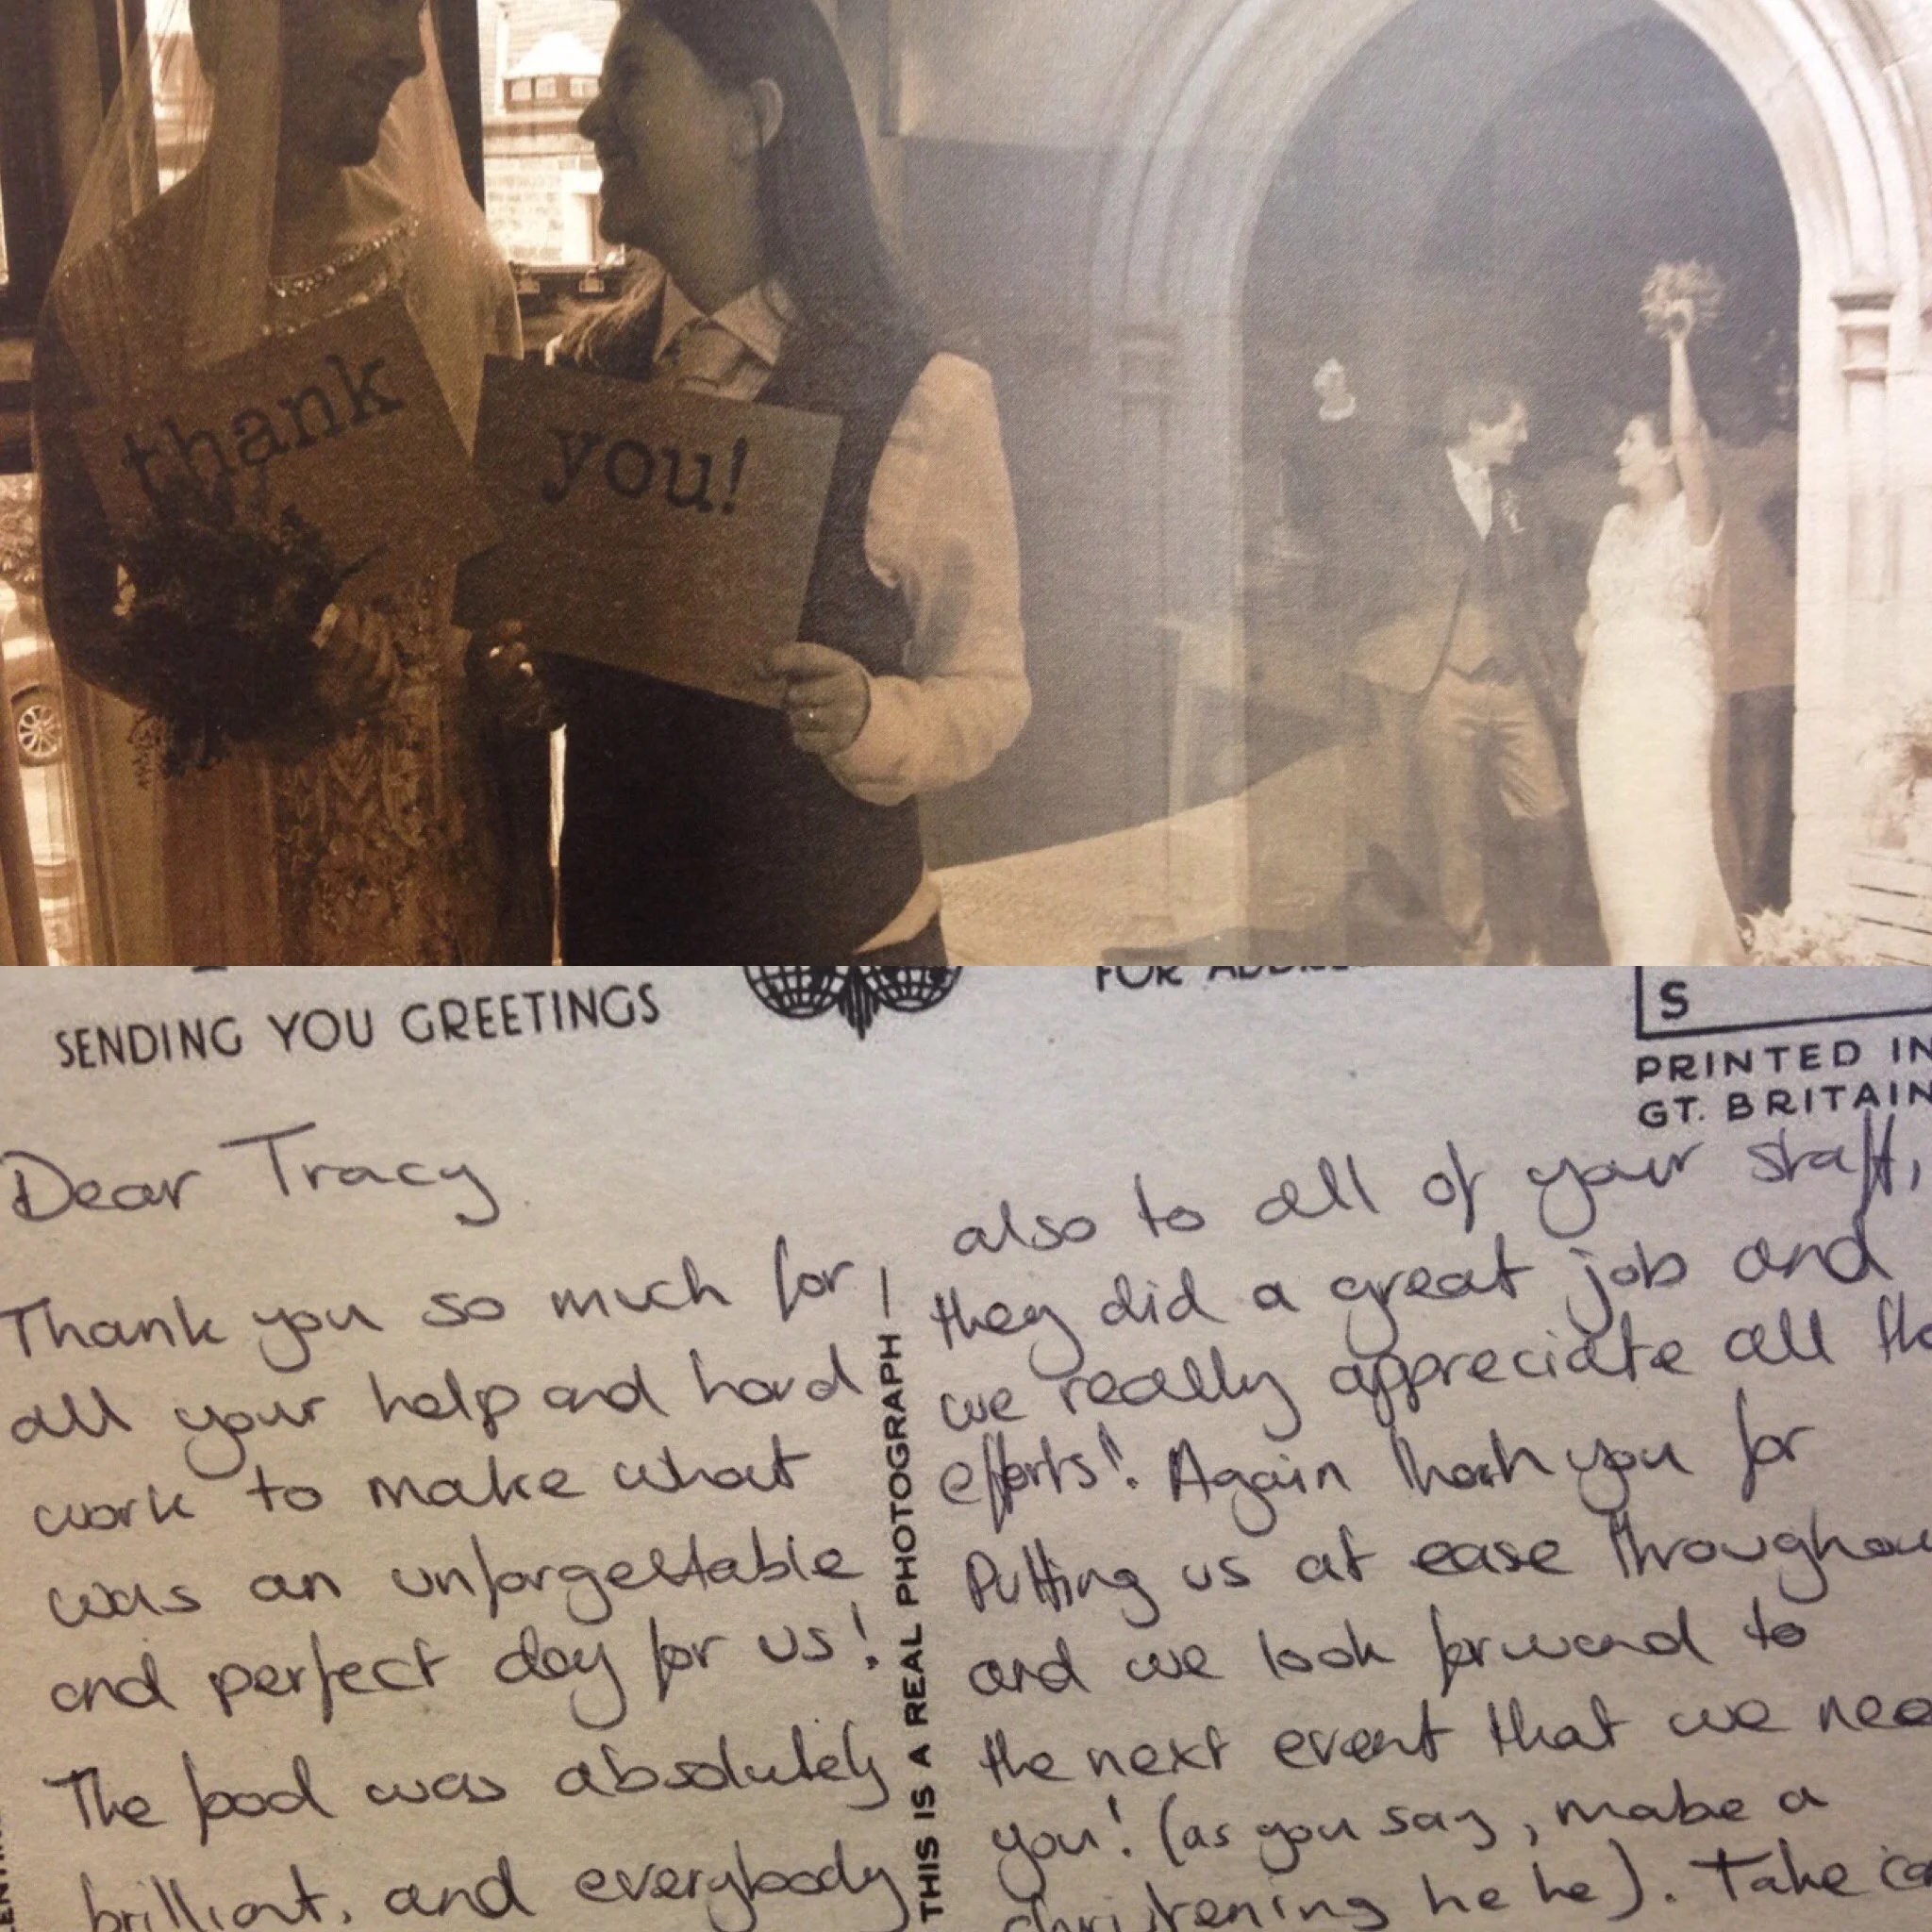 thank
you!
SENDING YOU GREETINGS
FOR
S
PRINTED IN
GT. BRITAIN
Dear Tracy
Thank you so much for
all your help and hard
work to make what
was an unforgettable
and perfect day for us!
The food was absolutely
brilliant, and everybody
THIS IS A REAL PHOTOGRAPH
also to all of your staff,
they did a great job and
we really appreciate all
efforts! Again thank you for
putting us at ease
and we look forward to
the next event that we
you! (as you say, mabe a
christening he he). Take